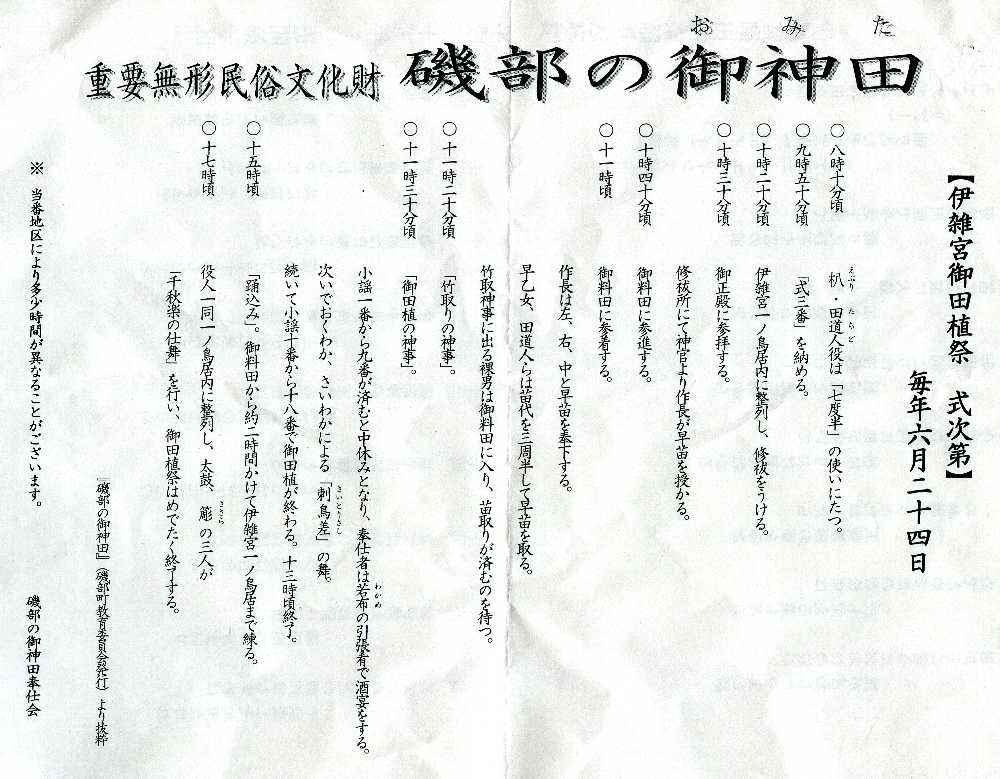 おみた
重要無形民俗文化財 磯部の御神田
【伊雑宮御田植祭 式次第】
毎年六月二十四日
えぶり
○八時十分頃 朳・田道人役は「七度半」の使いにたつ。
○九時五十分頃 「式三番」を納める。
○十時二十分頃 伊雑宮一ノ鳥居内に整列し、修祓をうける。
○十時三十分頃 御正殿に参拝する。
修祓所にて神官より作長が早苗を授かる。
○十時四十分頃 御料田に参進する。
○十一時頃 御料田に参着する。
作長は左、右、中と早苗を奉下する。
早乙女、田道人らは苗代を三周半して早苗を取る。
竹取神事に出る裸男は御料田に入り、苗取りが済むのを待つ。
○十一時二十分頃 「竹取りの神事」。
○十一時三十分頃 「御田植の神事」。
わかめ
小謡一番から九番が済むと中休みとなり、奉仕者は若布の引張肴で酒宴をする。
さいとりさし
次いでおくわか、さいわかによる「刺鳥差」の舞。
続いて小謡十番から十八番で御田植が終わる。十三時頃終了。
○十五時頃 「踊込み」。御料田から約二時間かけて伊雑宮一ノ鳥居まで練る。
ささら
○十七時頃 役人一同一ノ鳥居内に整列し、太鼓、簓の三人が
「千秋楽の仕舞」を行い、御田植祭はめでたく終了する。
『磯部の御神田』(磯部町教育委員会発行)より抜粋
※ 当番地区により多少時間が異なることがございます。
磯部の御神田奉仕会